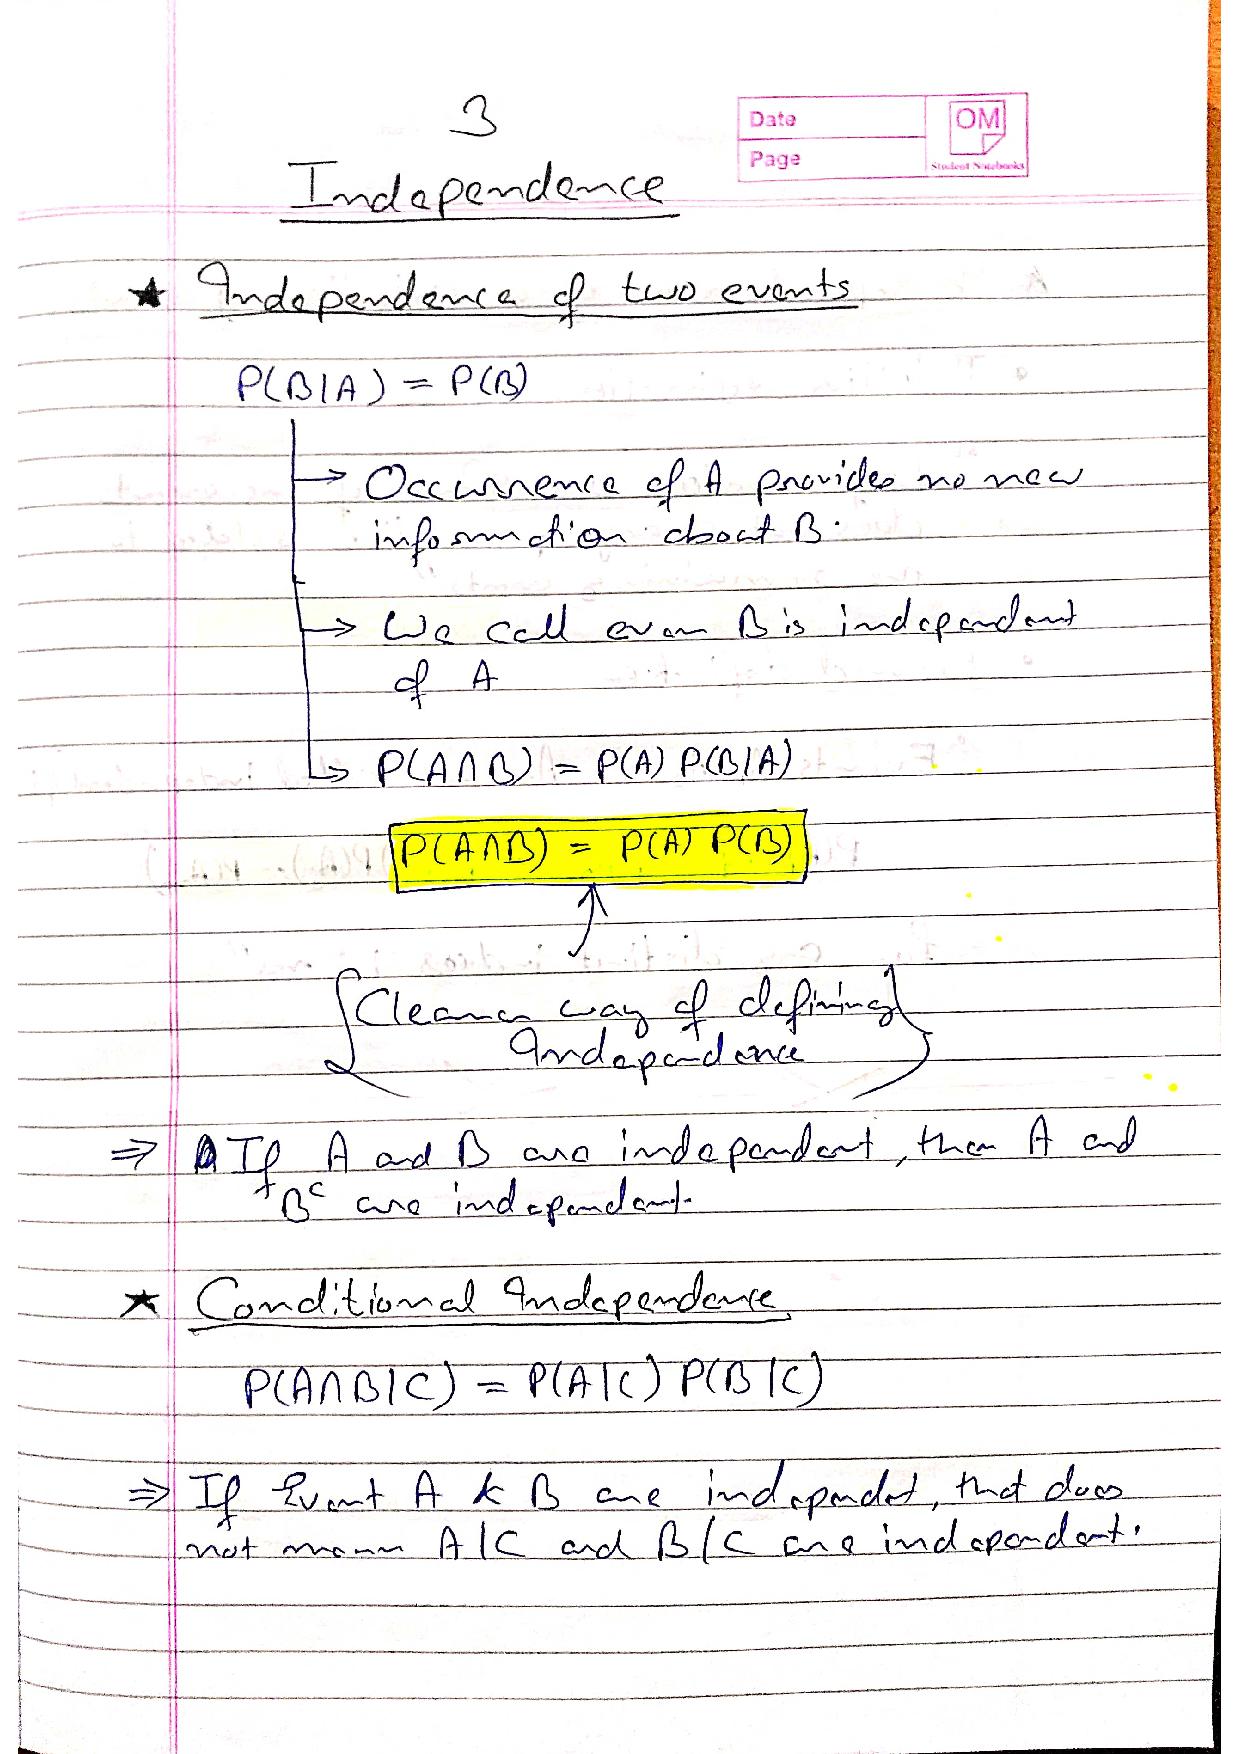 3
Date
Page
OM
Student Notebooks
Independence
★ Independence of two events
P(B|A) = P(B)
→ Occurrence of A provides no new
information about B.
→ We call even B is independent
of A
↳ P(A∩B) = P(A) P(B|A)
P(A∩B) = P(A) P(B)
Cleaner way of defining
Independence
⇒ If A and B are independent, then A and
Bᶜ are independent.
★ Conditional Independence
P(A∩B|C) = P(A|C) P(B|C)
⇒ If Event A & B are independent, that does
not mean A|C and B|C are independent.